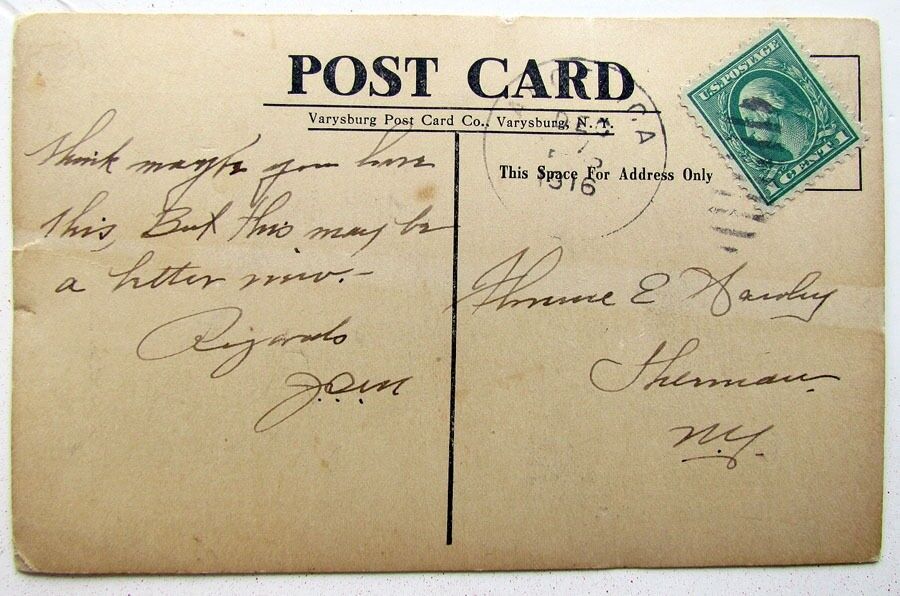 POST CARD
Varysburg Post Card Co., Varysburg, N. Y.
This Space For Address Only
DEC
1916
U.S. POSTAGE
1 CENT 1
Think maybe you have
this, But this may be
a better view.-
Regards
Florence E
Sherman
N.Y.